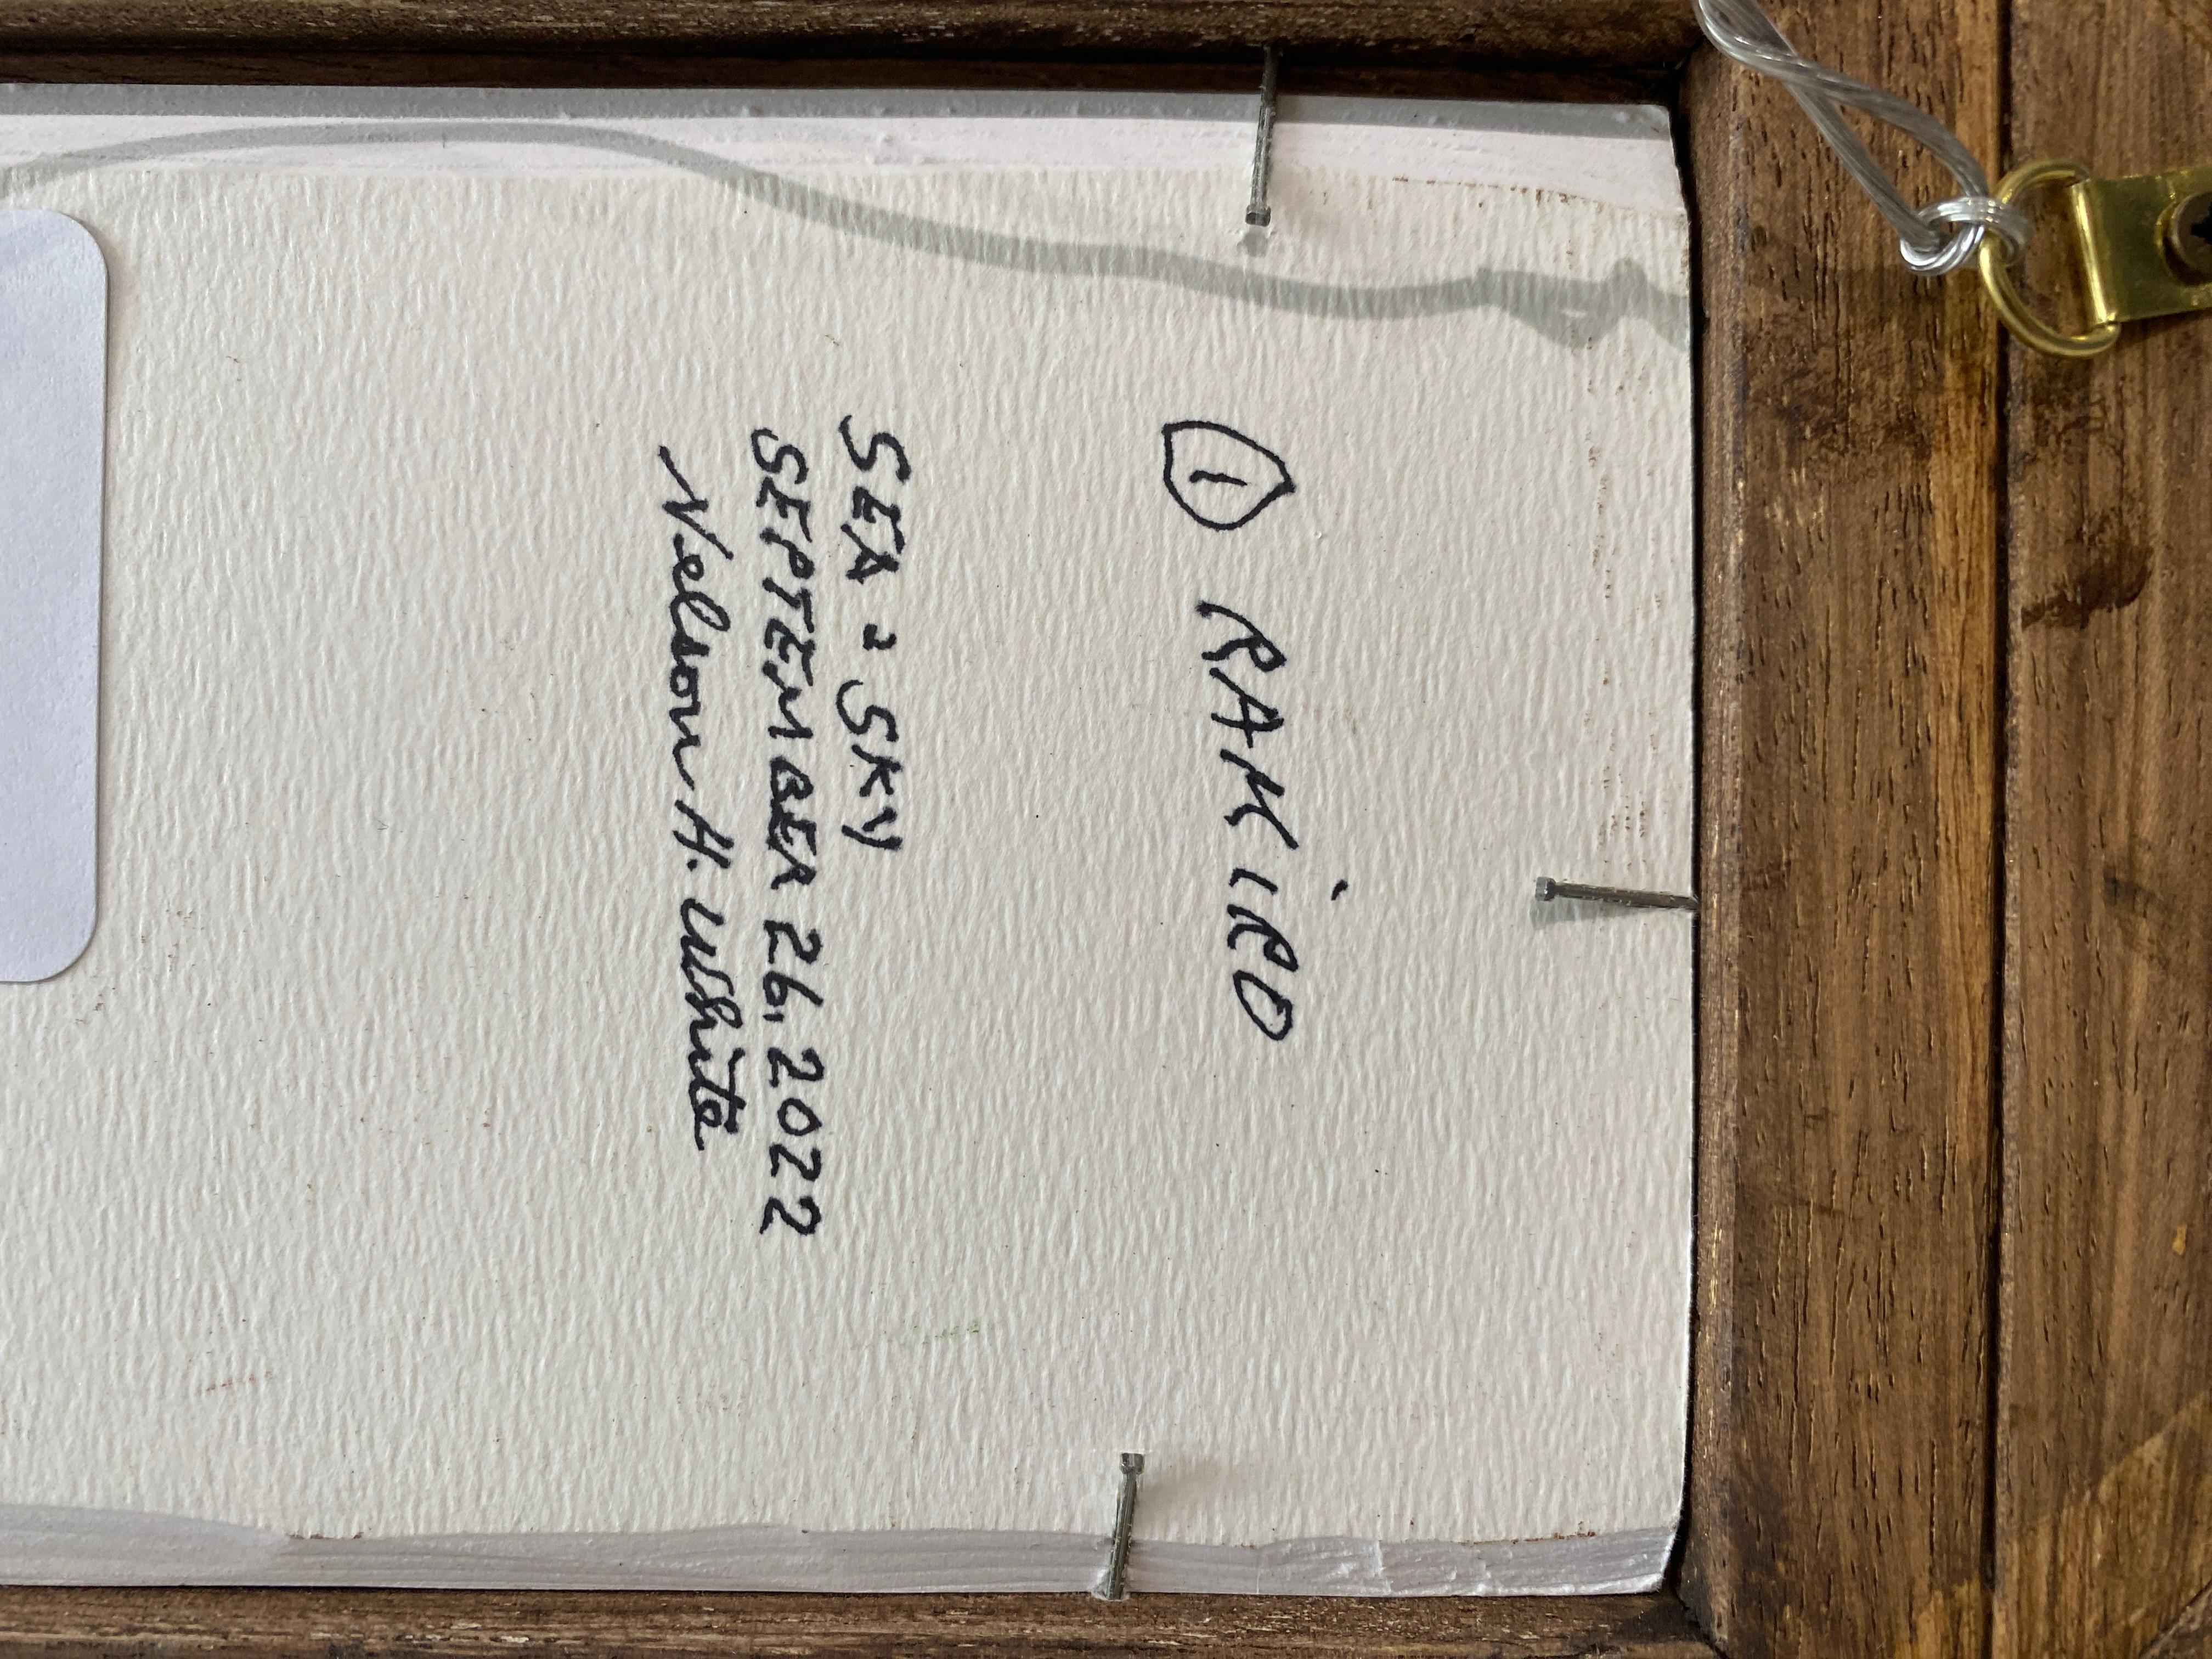 ① RAMiRO
SEA = SKY
SEPTEMBER 26, 2022
Nelson H. White